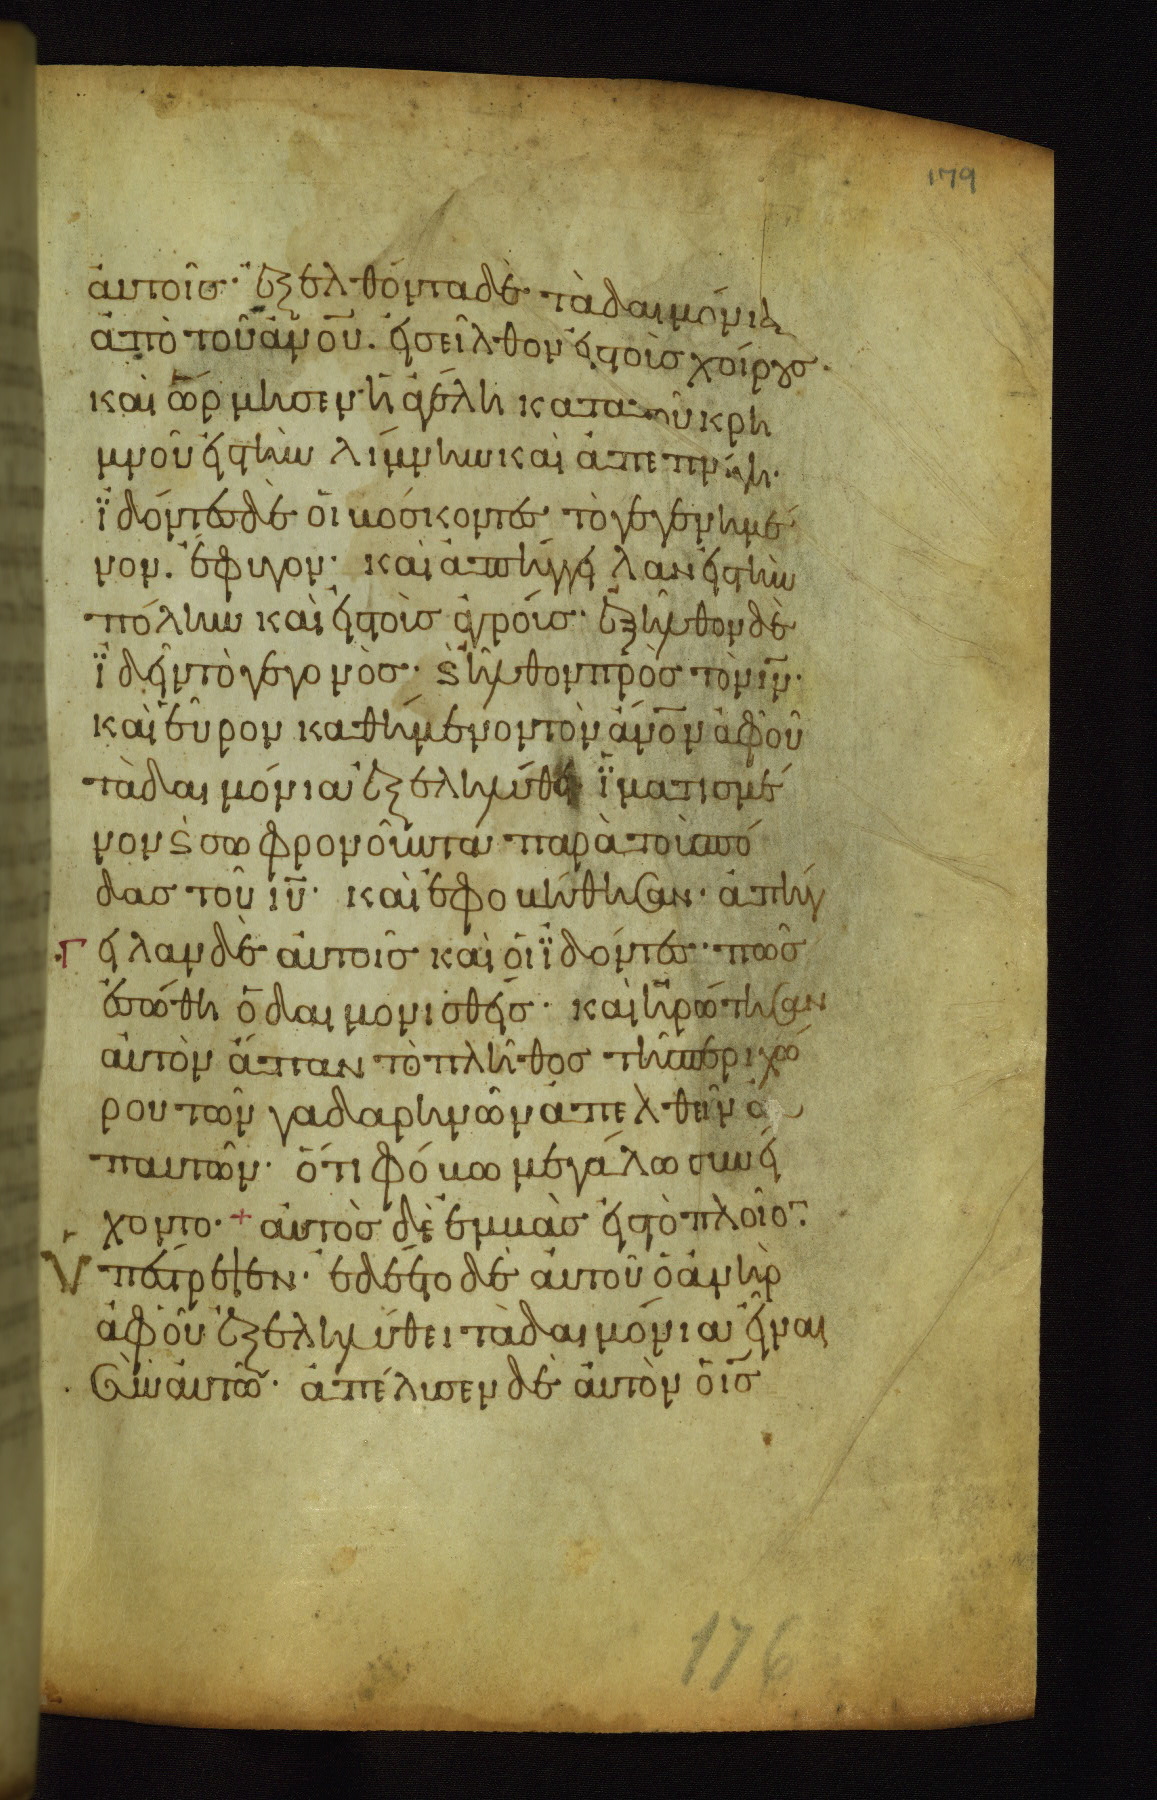 179
ἀυτοῖσ· ἐξελθόνταδὲ τὰδαιμόνια
ἀπὸ τοῦ ἀν̅ου. ἐισεῖλθον ἐιστοὺσ χοίρȣσ·
καὶ ὥρμησεν ἡ ἀγέλη κατατοῦ κρη
μνοῦ ἐιστὴν λίμνην καὶ ἀπεπνίγη·
ϊδόντεσδὲ ὁι βόσκοντεσ τὸ γεγενημέ
νον. ἔφυγον· καὶ ἀπήγγειλαν ἐιστὴν
πόλην καὶ ἐιστοὺσ ἀγρούσ· ἐξῆλθον δὲ
ϊδεῖν τὸ γεγονὸσ· ϗ ἦλθον πρὸσ τὸν ιν̅·
καὶ εὗρον καθήμενον τὸν ἀν̅ον ἀφοῦ
τὰδαιμόνια ἐξεληλύθει ϊματισμέ
νον ϗ σωφρονοῦντα παρὰ τοὺσπό
δασ τοῦ ιυ̅· καὶ ἐφοβήθησαν· ἀπήγ
γειλαν δὲ ἀυτοῖσ καὶ ὁι ϊδόντεσ· πῶσ
ἐσώθη ὁ δαιμονισθείσ· καὶ ἠρώτησαν
ἀυτὸν ἅπαν τὸ πλῆθοσ τῆσπεριχώ
ρου τῶν γαδαρηνῶν ἀπελθεῖν ἀ
παυτῶν· ὅτι φόβω μεγάλω συνεί
χοντο· + ἀυτὸσ δὲ ἐμβὰσ ἐιστὸ πλοῖο̅·
Ὑπέστρεψεν· ἐδέετο δὲ ἀυτοῦ ὁ ἀνὴρ
ἀφοῦ ἐξεληλύθει τὰδαιμόνια εἶναι
σὺν ἀυτῶ· ἀπέλυσεν δὲ ἀυτὸν ὁ ισ̅
176